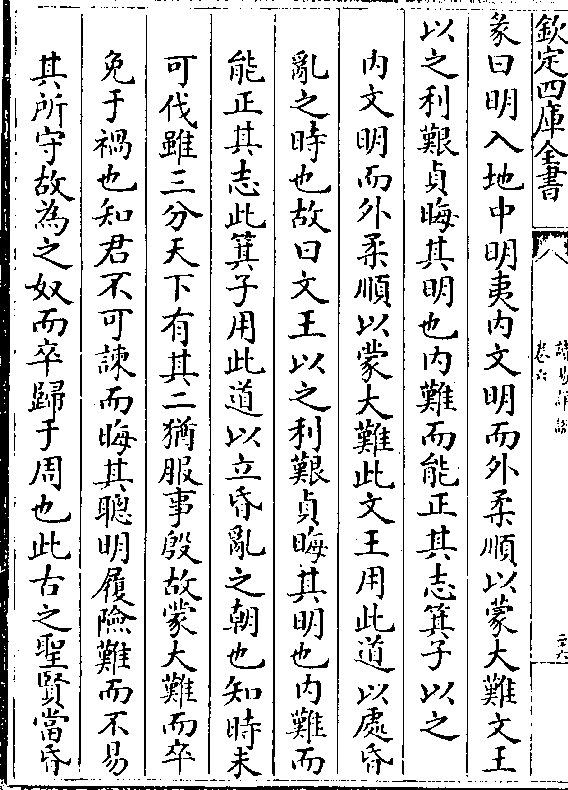 欽定四庫全書
讀易詳説
卷六
彖曰明入地中明夷内文明而外柔順以蒙大難文王
以之利艱貞晦其明也内難而能正其志箕子以之
内文明而外柔順以蒙大難此文王用此道以處昏
亂之時也故曰文王以之利艱貞晦其明也内難而
能正其志此箕子用此道以立昏亂之朝也知時未
可伐雖三分天下有其二猶服事殷故蒙大難而卒
免于禍也知君不可諫而晦其聰明履險難而不易
其所守故為之奴而卒歸于周也此古之聖賢當昏